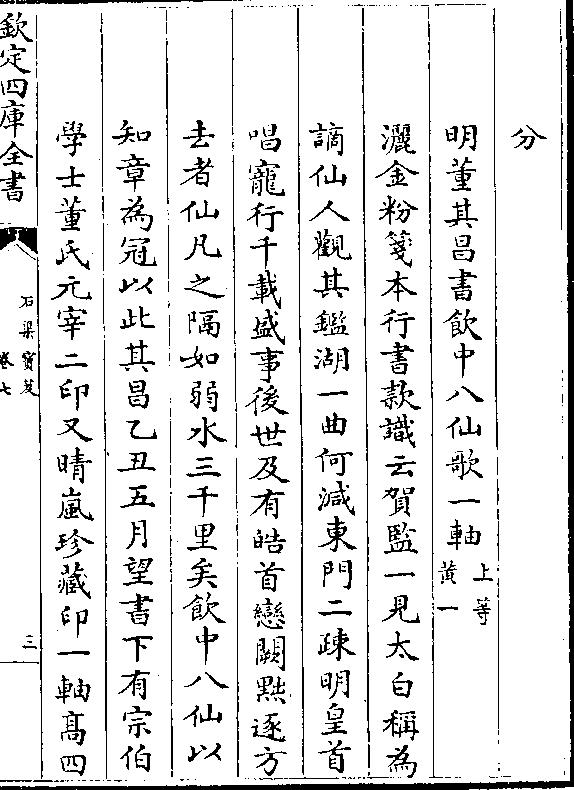 分
明董其昌書飲中八仙歌一軸 上等 黃一
灑金粉箋本行書款識云賀監一見太白稱為
謫仙人觀其鑑湖一曲何減東門二疎明皇首
唱寵行千載盛事後世及有皓首戀闕㸃逐方
去者仙凡之隔如弱水三千里矣飲中八仙以
知章為冠以此其昌乙丑五月望書下有宗伯
學士董氏元宰二印又晴嵐珍藏印一軸髙四
欽定四庫全書
石渠寳笈
卷七
三